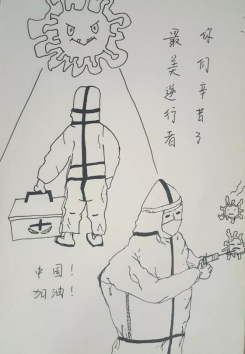 你们辛苦了
最美逆行者
中国！
加油！